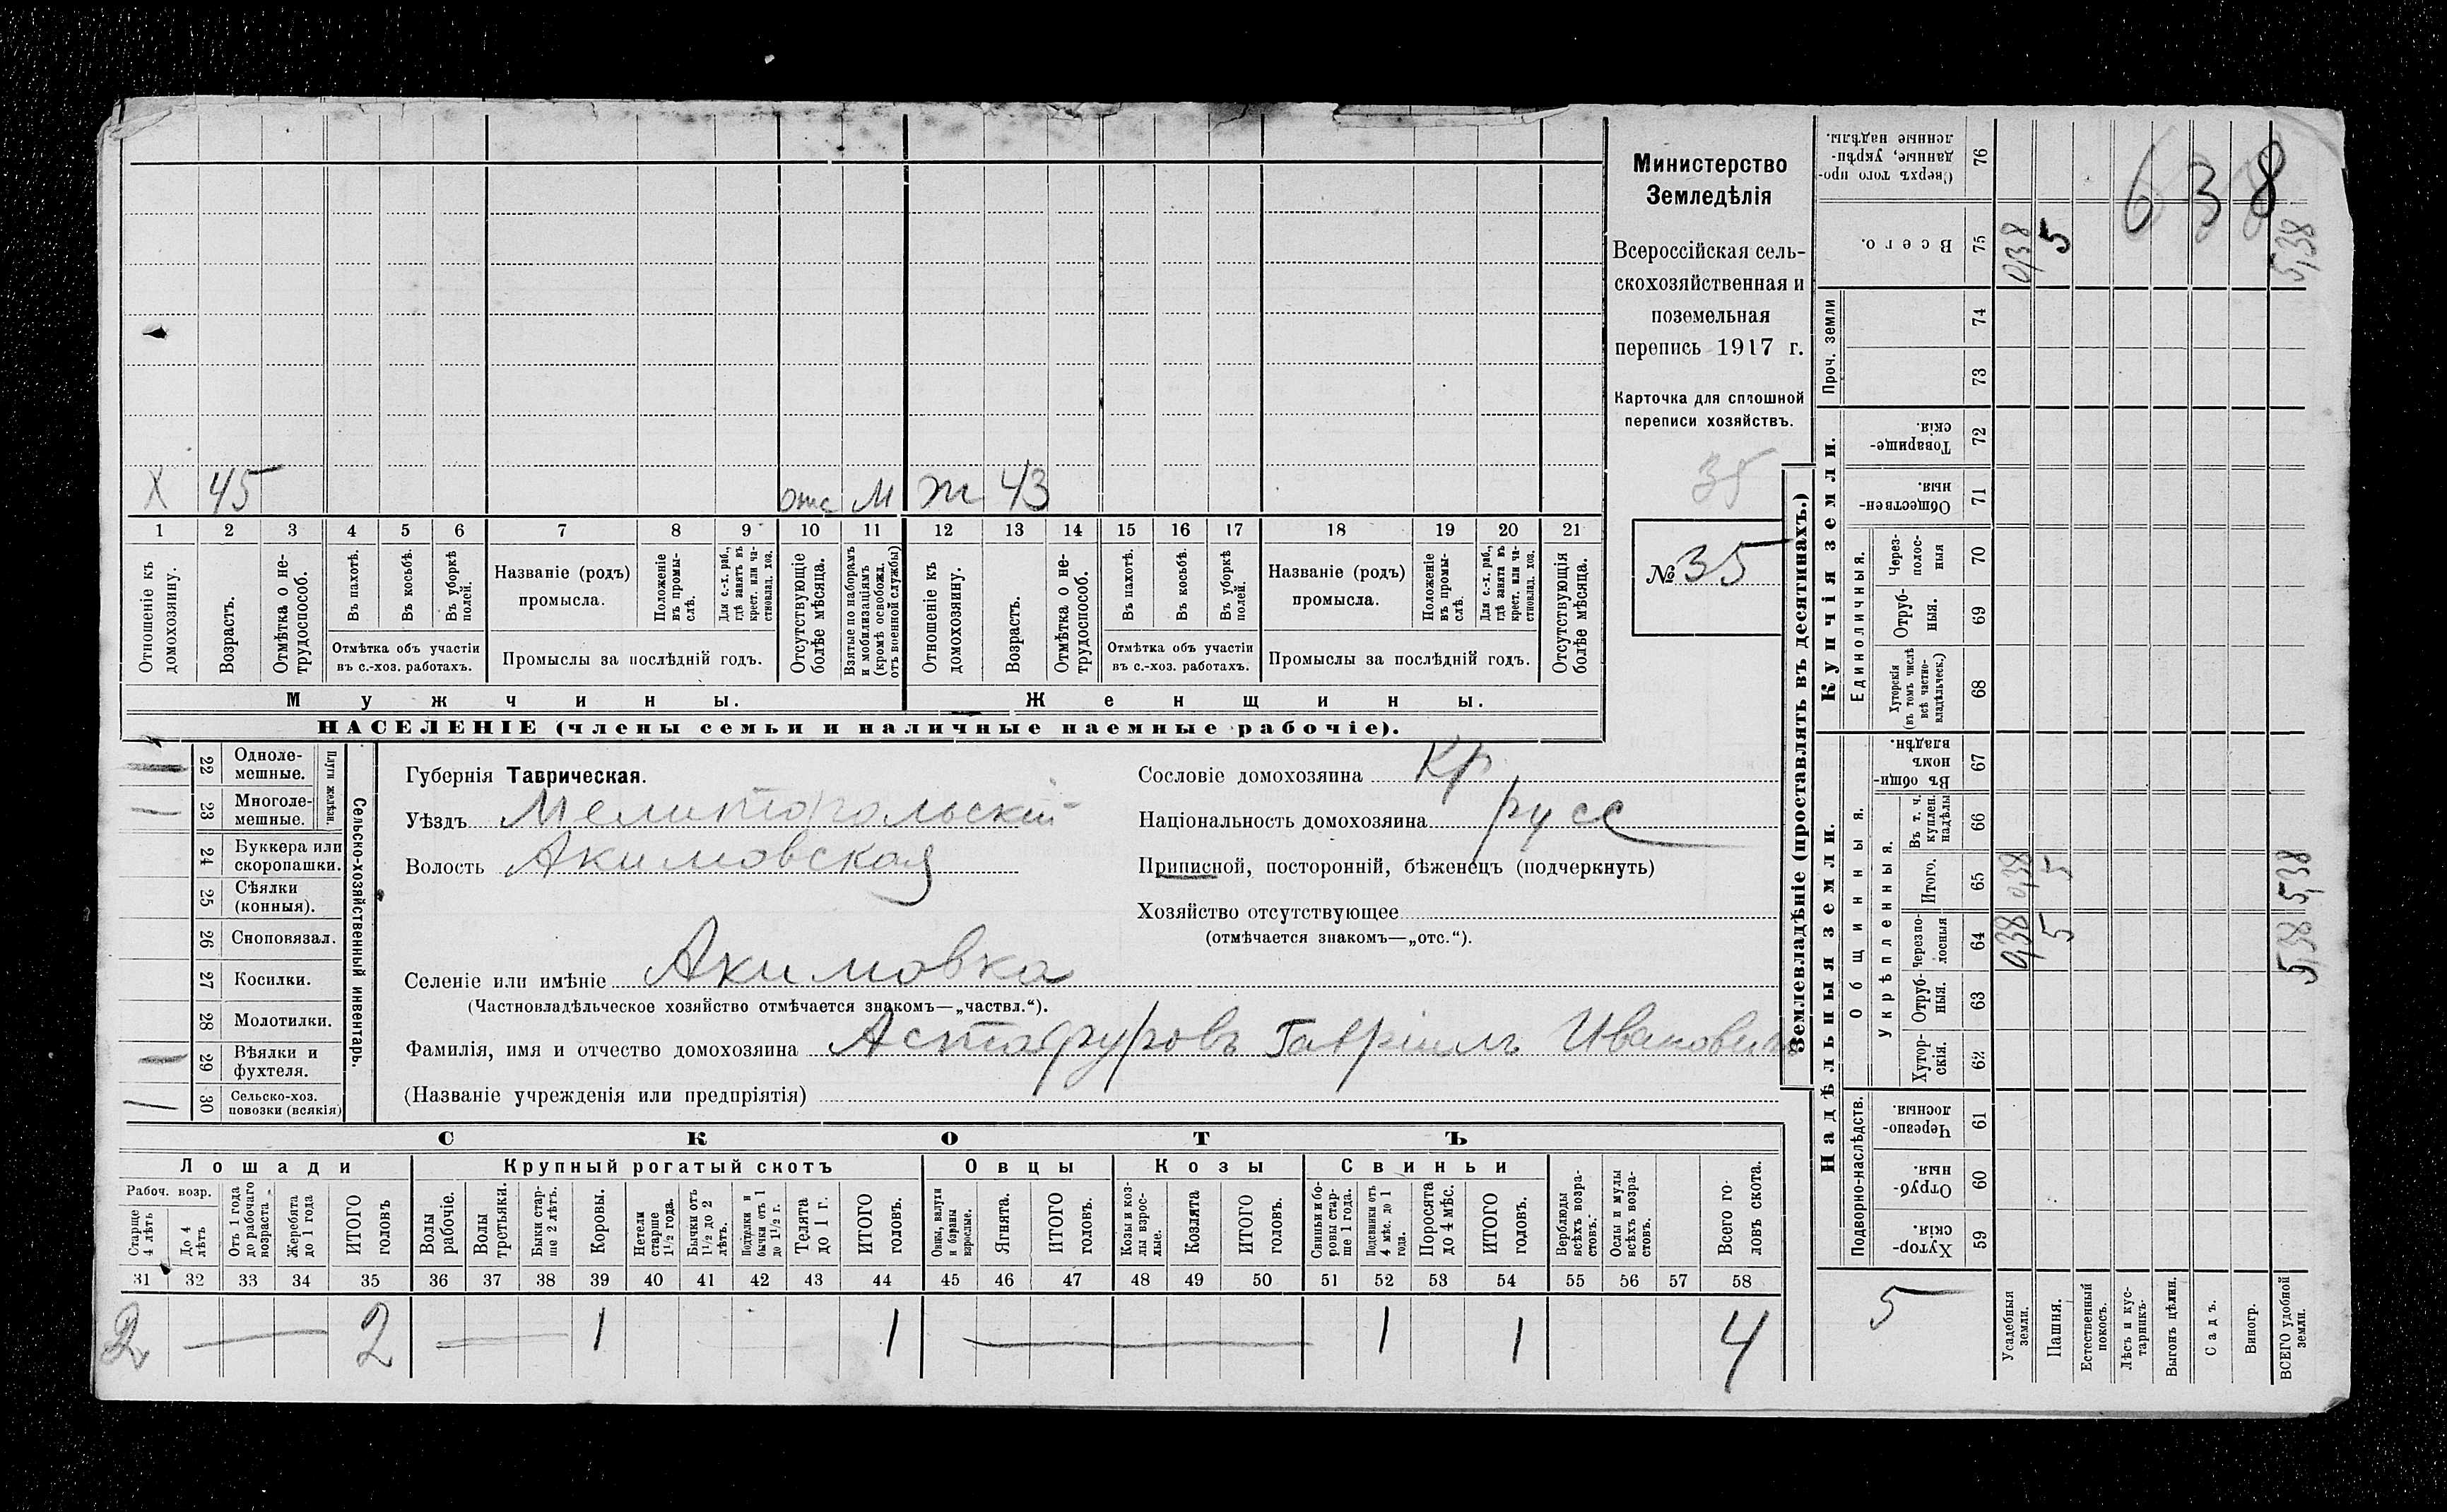 Министерство
Земледѣлія
Всероссійская сель-
скохозяйственная и
поземельная
перепись 1917 г.
Карточка для сплошной
переписи хозяйствъ.
35
№ 35
Х 45 отс М ж 43
1 2 3 4 5 6 7 8 9 10 11 12 13 14 15 16 17 18 19 20 21
Отношеніе къ домохозяину.
Возрастъ.
Отмѣтка о не-трудоспособ.
Въ пахотѣ.
Въ косьбѣ.
Въ уборкѣ полей.
Отмѣтка объ участіи
въ с.-хоз. работахъ.
Названіе (родъ)
промысла.
Положеніе въ промы-слѣ.
Для с.-х. раб., гдѣ занятъ въ крест. или ча-стновлад. хоз.
Промыслы за послѣдній годъ.
Отсутствующіе болѣе мѣсяца.
Взятые по наборамъ и мобилизаціямъ (кромѣ освобожд. отъ военной службы)
Отношеніе къ домохозяину.
Возрастъ.
Отмѣтка о не-трудоспособ.
Въ пахотѣ.
Въ косьбѣ.
Въ уборкѣ полей.
Отмѣтка объ участіи
въ с.-хоз. работахъ.
Названіе (родъ)
промысла.
Положеніе въ промы-слѣ.
Для с.-х. раб., гдѣ занята въ крест. или ча-стновлад. хоз.
Промыслы за послѣдній годъ.
Отсутствующія болѣе мѣсяца.
Мужчины.
Женщины.
НАСЕЛЕНІЕ (члены семьи и наличные наемные рабочіе).
22 Одноле-мешные.
23 Многоле-мешные.
Плуги желѣзн.
24 Буккера или скоропашки.
25 Сѣялки (конныя).
26 Сноповязал.
27 Косилки.
28 Молотилки.
29 Вѣялки и фухтеля.
30 Сельско-хоз. повозки (всякія)
Сельско-хозяйственный инвентарь.
Губернія Таврическая.
Уѣздъ Мелитопольскій
Волость Акимовская
Селеніе или имѣніе Акимовка
(Частновладѣльческое хозяйство отмѣчается знакомъ—„частвл.“).
Фамилія, имя и отчество домохозяина Астафуровъ Гавріилъ Ивановичъ
(Названіе учрежденія или предпріятія)
Сословіе домохозяина Кр
Національность домохозяина русс
Приписной, посторонній, бѣженецъ (подчеркнуть)
Хозяйство отсутствующее
(отмѣчается знакомъ—„отс.“).
СКОТЪ
Лошади
Рабоч. возр.
Старше 4 лѣтъ
До 4 лѣтъ
Отъ 1 года до рабочаго возраста
Жеребята до 1 года
ИТОГО головъ
Крупный рогатый скотъ
Волы рабочіе.
Волы третьяки.
Быки стар-ше 2 лѣтъ.
Коровы.
Нетели старше 1½ года.
Бычки отъ 1½ до 2 лѣтъ.
Подтелки и бычки отъ 1 до 1½ г.
Телята до 1 г.
ИТОГО головъ.
Овцы
Овцы, валухи и бараны взрослые.
Ягнята.
ИТОГО головъ.
Козы
Козы и коз-лы взрос-лые.
Козлята
ИТОГО головъ.
Свиньи
Свиньи и бо-ровы стар-ше 1 года.
Подсвинки отъ 4 мѣс. до 1 года.
Поросята до 4 мѣс.
ИТОГО головъ.
Верблюды всѣхъ возра-стовъ.
Ослы и мулы всѣхъ возра-стовъ.
Всего го-ловъ скота.
31 32 33 34 35 36 37 38 39 40 41 42 43 44 45 46 47 48 49 50 51 52 53 54 55 56 57 58
2 2 1 1 1 1 4
Землевладѣніе (проставлять въ десятинахъ.)
Надѣльныя земли.
Купчія земли.
Проч. земли
Подворно-наслѣдств.
Общинныя.
укрѣпленныя.
Единоличныя.
76 Сверхъ того про-данные, укрѣп-ленные надѣлы.
75 Всего. 0,38 5 5,38
638
74
73
72 Товарище-скія.
71 Обществен-ныя.
70 Через-полос-ныя
69 Отруб-ныя.
68 Хуторскія (въ томъ числѣ всѣ частно-владѣльческ.)
67 Въ общин-номъ владѣн.
66 Въ т. ч. куплен. надѣлы
65 Итого. 0,38 5 5,38
64 Черезпо-лосныя 0,38 5 5,38
63 Отруб-ныя.
62 Хутор-скія.
61 Черезпо-лосныя.
60 Отруб-ныя.
59 Хутор-скія.
5
Усадебныя земли.
Пашня.
Естественный покосъ.
Лѣсъ и кус-тарникъ.
Выгонъ цѣлин.
Садъ.
Виногр.
ВСЕГО удобной земли.